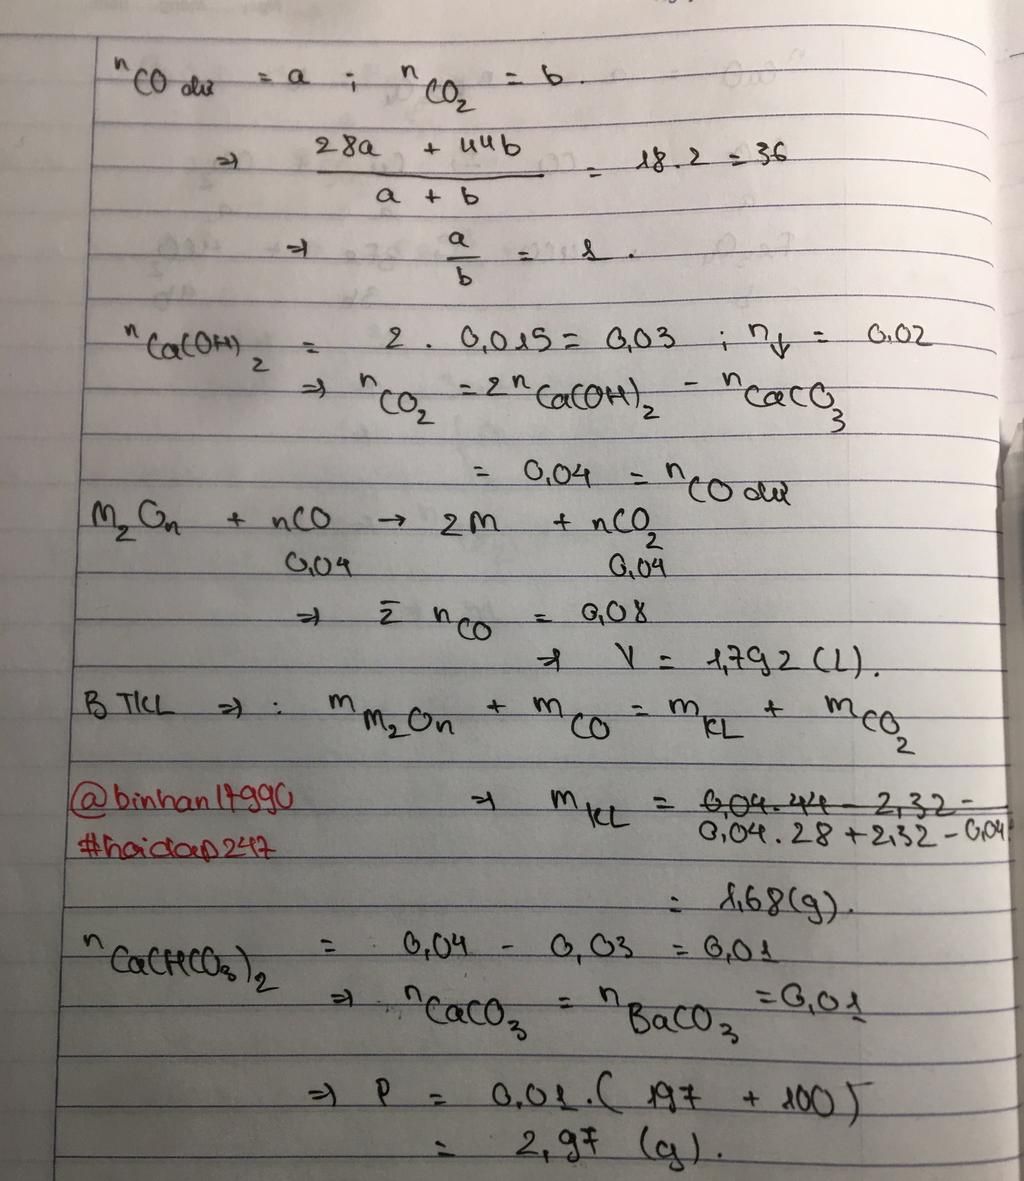 nCO dư = a ; nCO2 = b.
⇒ (28a + 44b)/(a + b) = 18.2 = 36
⇒ a/b = 1.
nCa(OH)2 = 2 . 0,015 = 0,03 ; n↓ = 0.02
⇒ nCO2 = 2nCa(OH)2 - nCaCO3
= 0,04 = nCO dư
M2On + nCO → 2M + nCO2
0,04 0,04
⇒ Σ nCO = 0,08
⇒ V = 1,792 (L).
BTKL ⇒ : mM2On + mCO = mKL + mCO2
@binhan17990 ⇒ mKL = 0,04.44 - 2,32 -
#hoidap247 0,04.28 + 2,32 - 0,04.
= 1,68(g).
nCa(HCO3)2 = 0,04 - 0,03 = 0,01
⇒ nCaCO3 = nBaCO3 = 0,01
⇒ P = 0,01.(197 + 100)
= 2,97 (g).